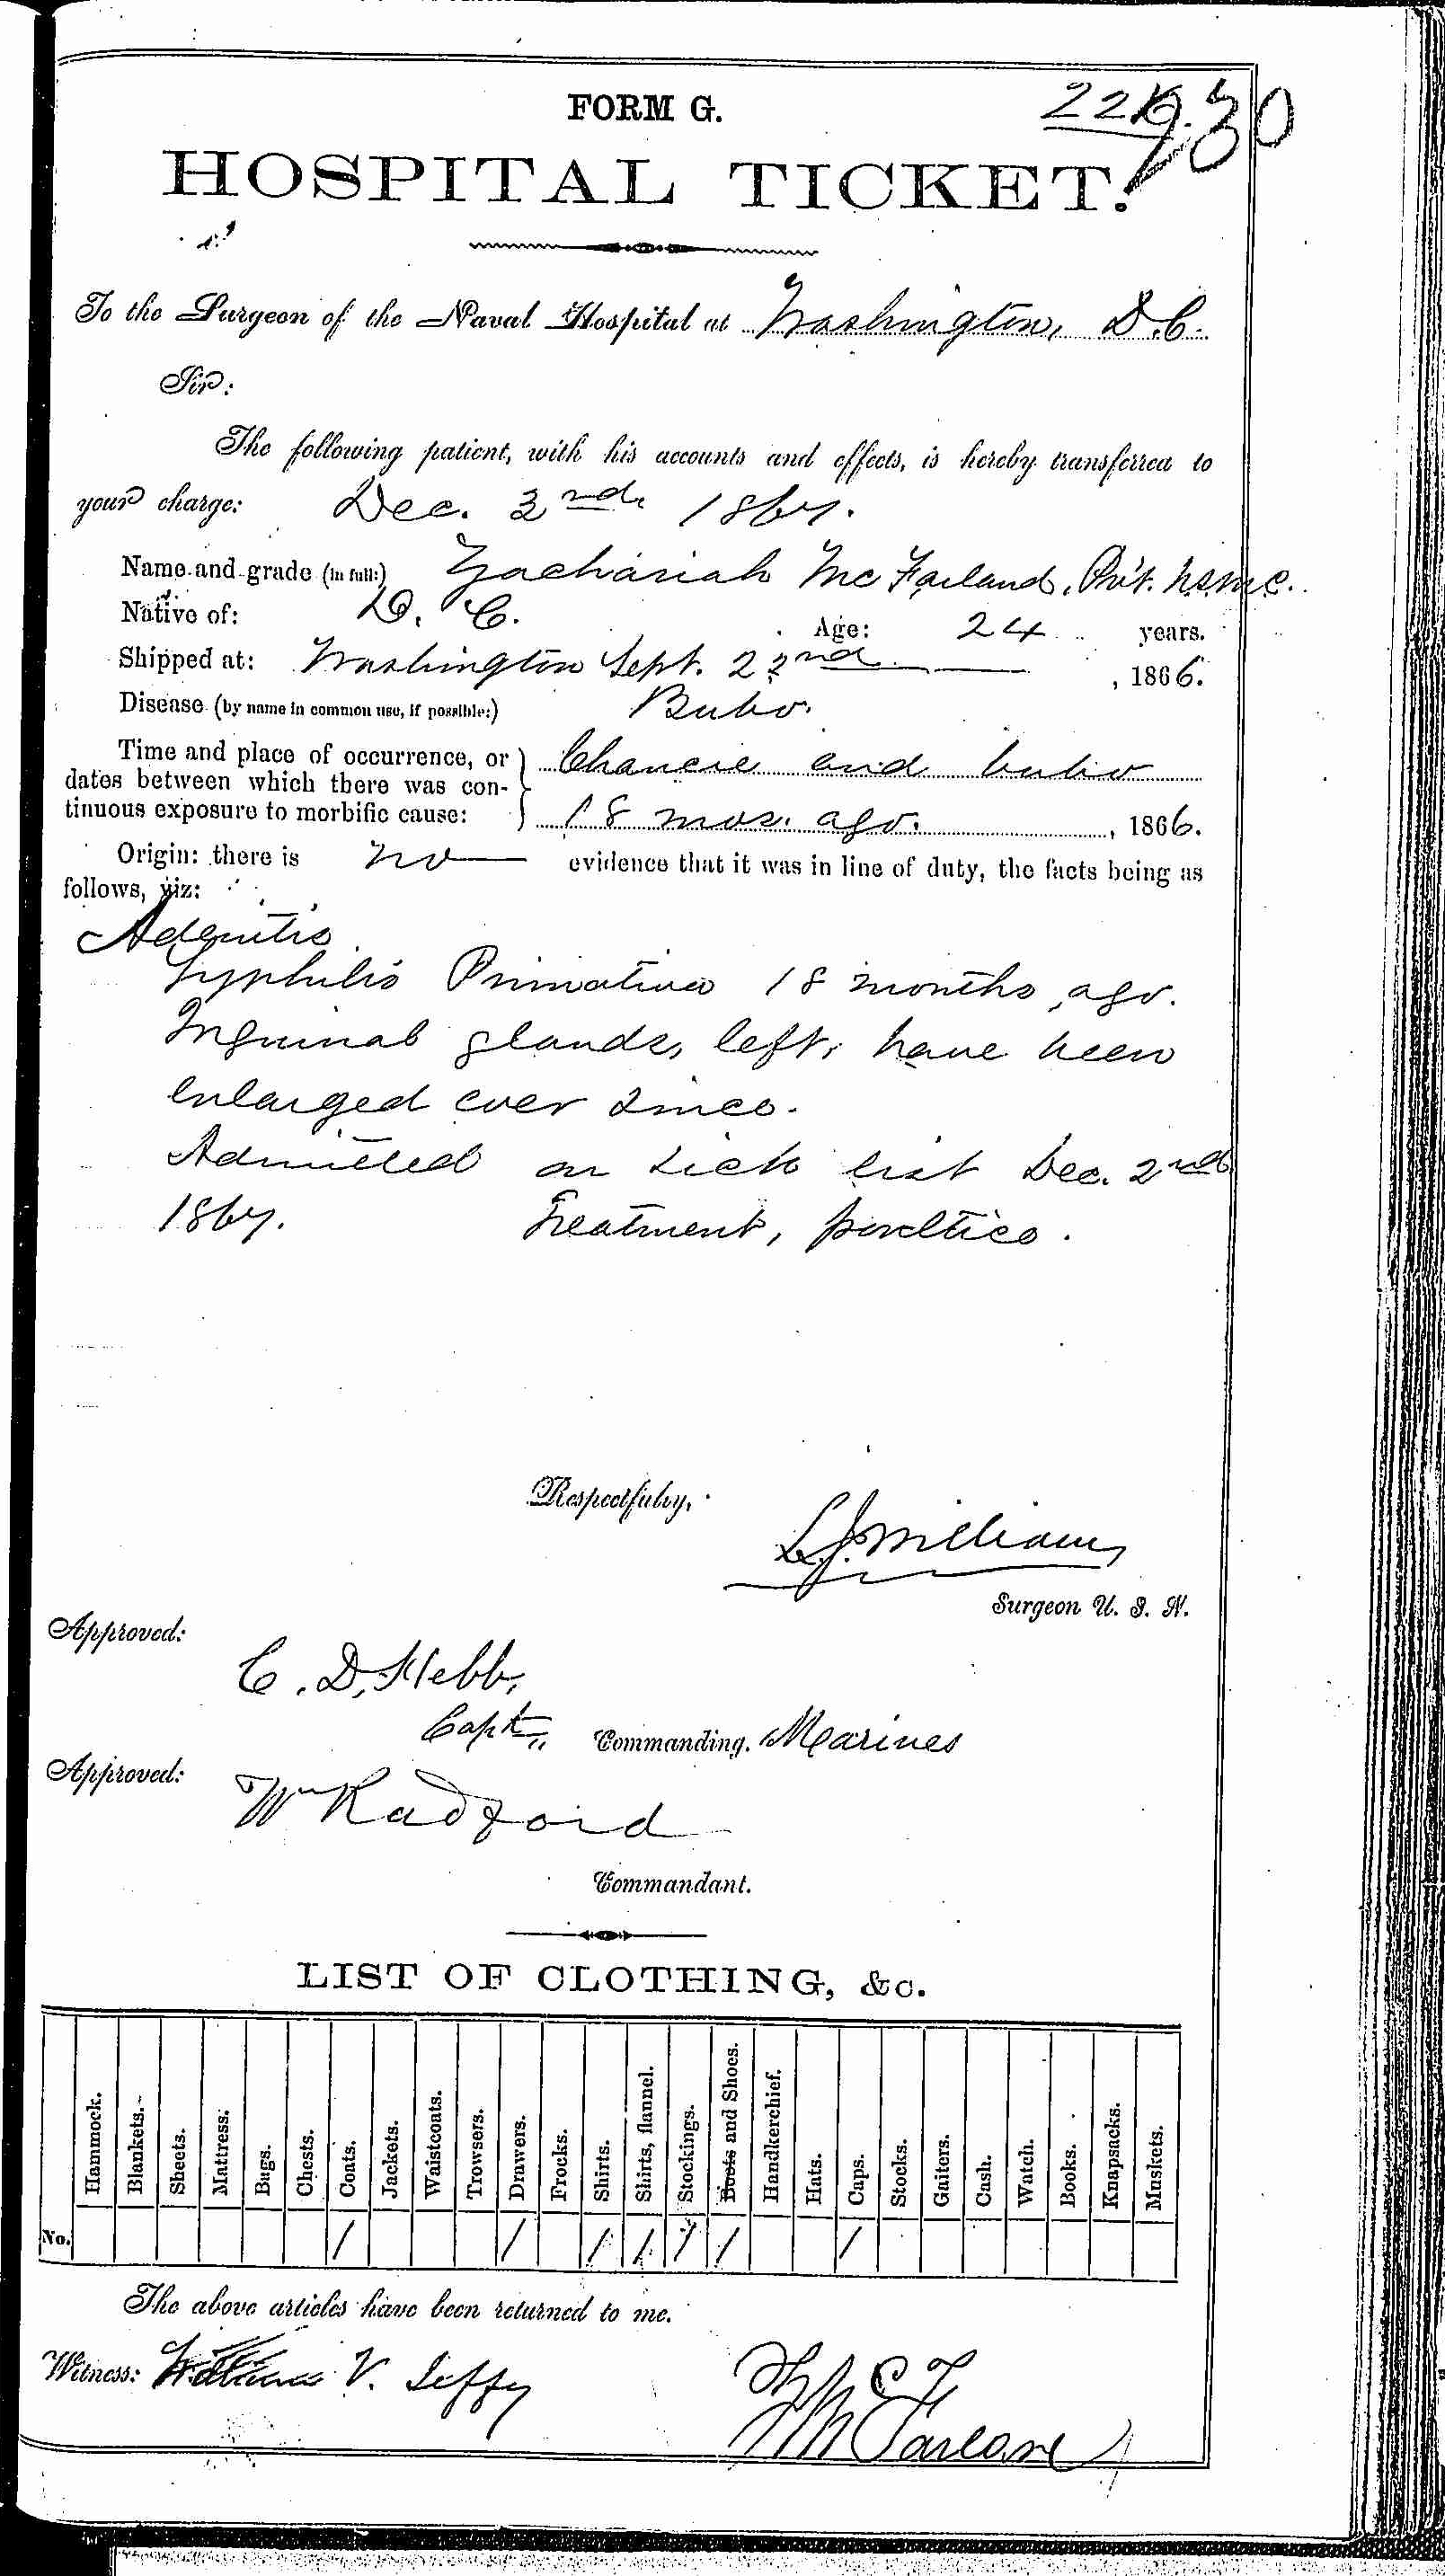 FORM G.
HOSPITAL TICKET.
To the Surgeon of the Naval Hospital at Washington, D.C.
Sir:
The following patient, with his accounts and effects, is hereby transferred to
your charge: Dec. 3rd. 1867.
Name and grade (in full:) Zachariah McFarland, Priv't. U.S.M.C.
Native of: D. C. Age: 24 years.
Shipped at: Washington Sept. 22nd , 1866.
Disease (by name in common use, if possible:) Bubo.
Time and place of occurrence, or
dates between which there was con-
tinuous exposure to morbific cause:
Chancre and bubo
18 mos. ago. , 1866.
Origin: there is no evidence that it was in line of duty, the facts being as
follows, viz:
Adenitis
Syphilis Primativa 18 months ago.
Inguinal glands, left, have been
enlarged ever since.
Admitted on sick list Dec. 2nd
1867. Treatment, poultice.
Respectfully,
L.J. Williams
Surgeon U. S. N.
Approved:
C. D. Hebb,
Capt. Commanding. Marines
Approved:
Wm Radford
Commandant.
LIST OF CLOTHING, &c.
Hammock. Blankets. Sheets. Mattress. Bags. Chests. Coats. Jackets. Waistcoats. Trowsers. Drawers. Frocks. Shirts. Shirts, flannel. Stockings. Boots and Shoes. Handkerchief. Hats. Caps. Stocks. Gaiters. Cash. Watch. Books. Knapsacks. Muskets.
No. / / / / / / /
The above articles have been returned to me.
Witness: William V. Jeffy